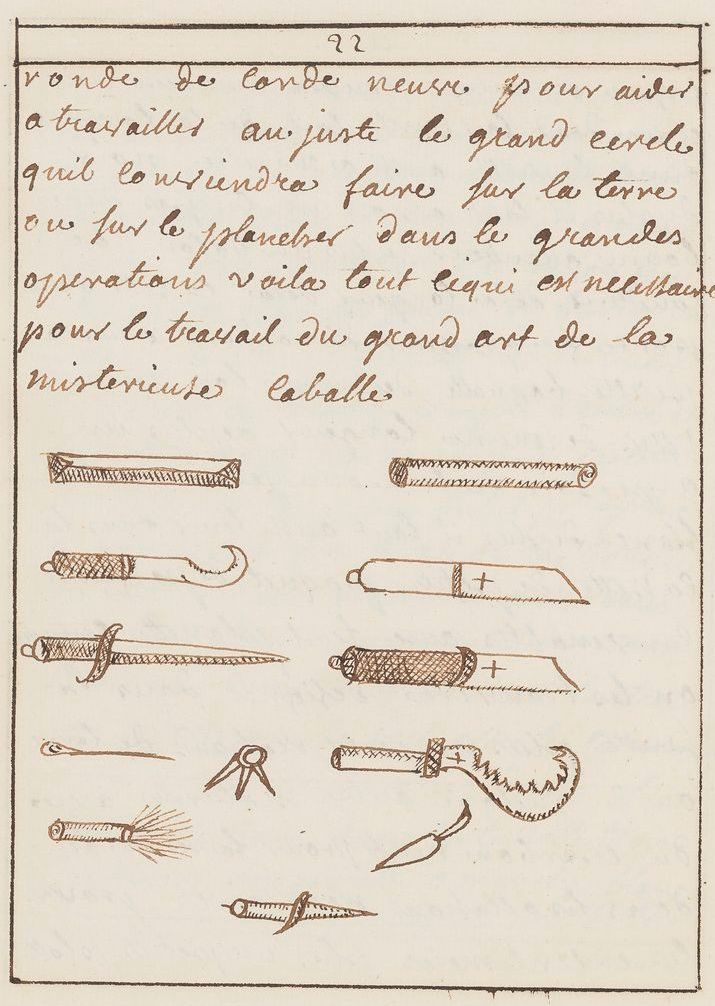 22
ronde de corde neuve pour aider
a travailler au juste le grand cercle
quil conviendra faire sur la terre
ou sur le plancher dans le grandes
operations voila tout cequi est necessaire
pour le travail du grand art de la
misterieuse caballe